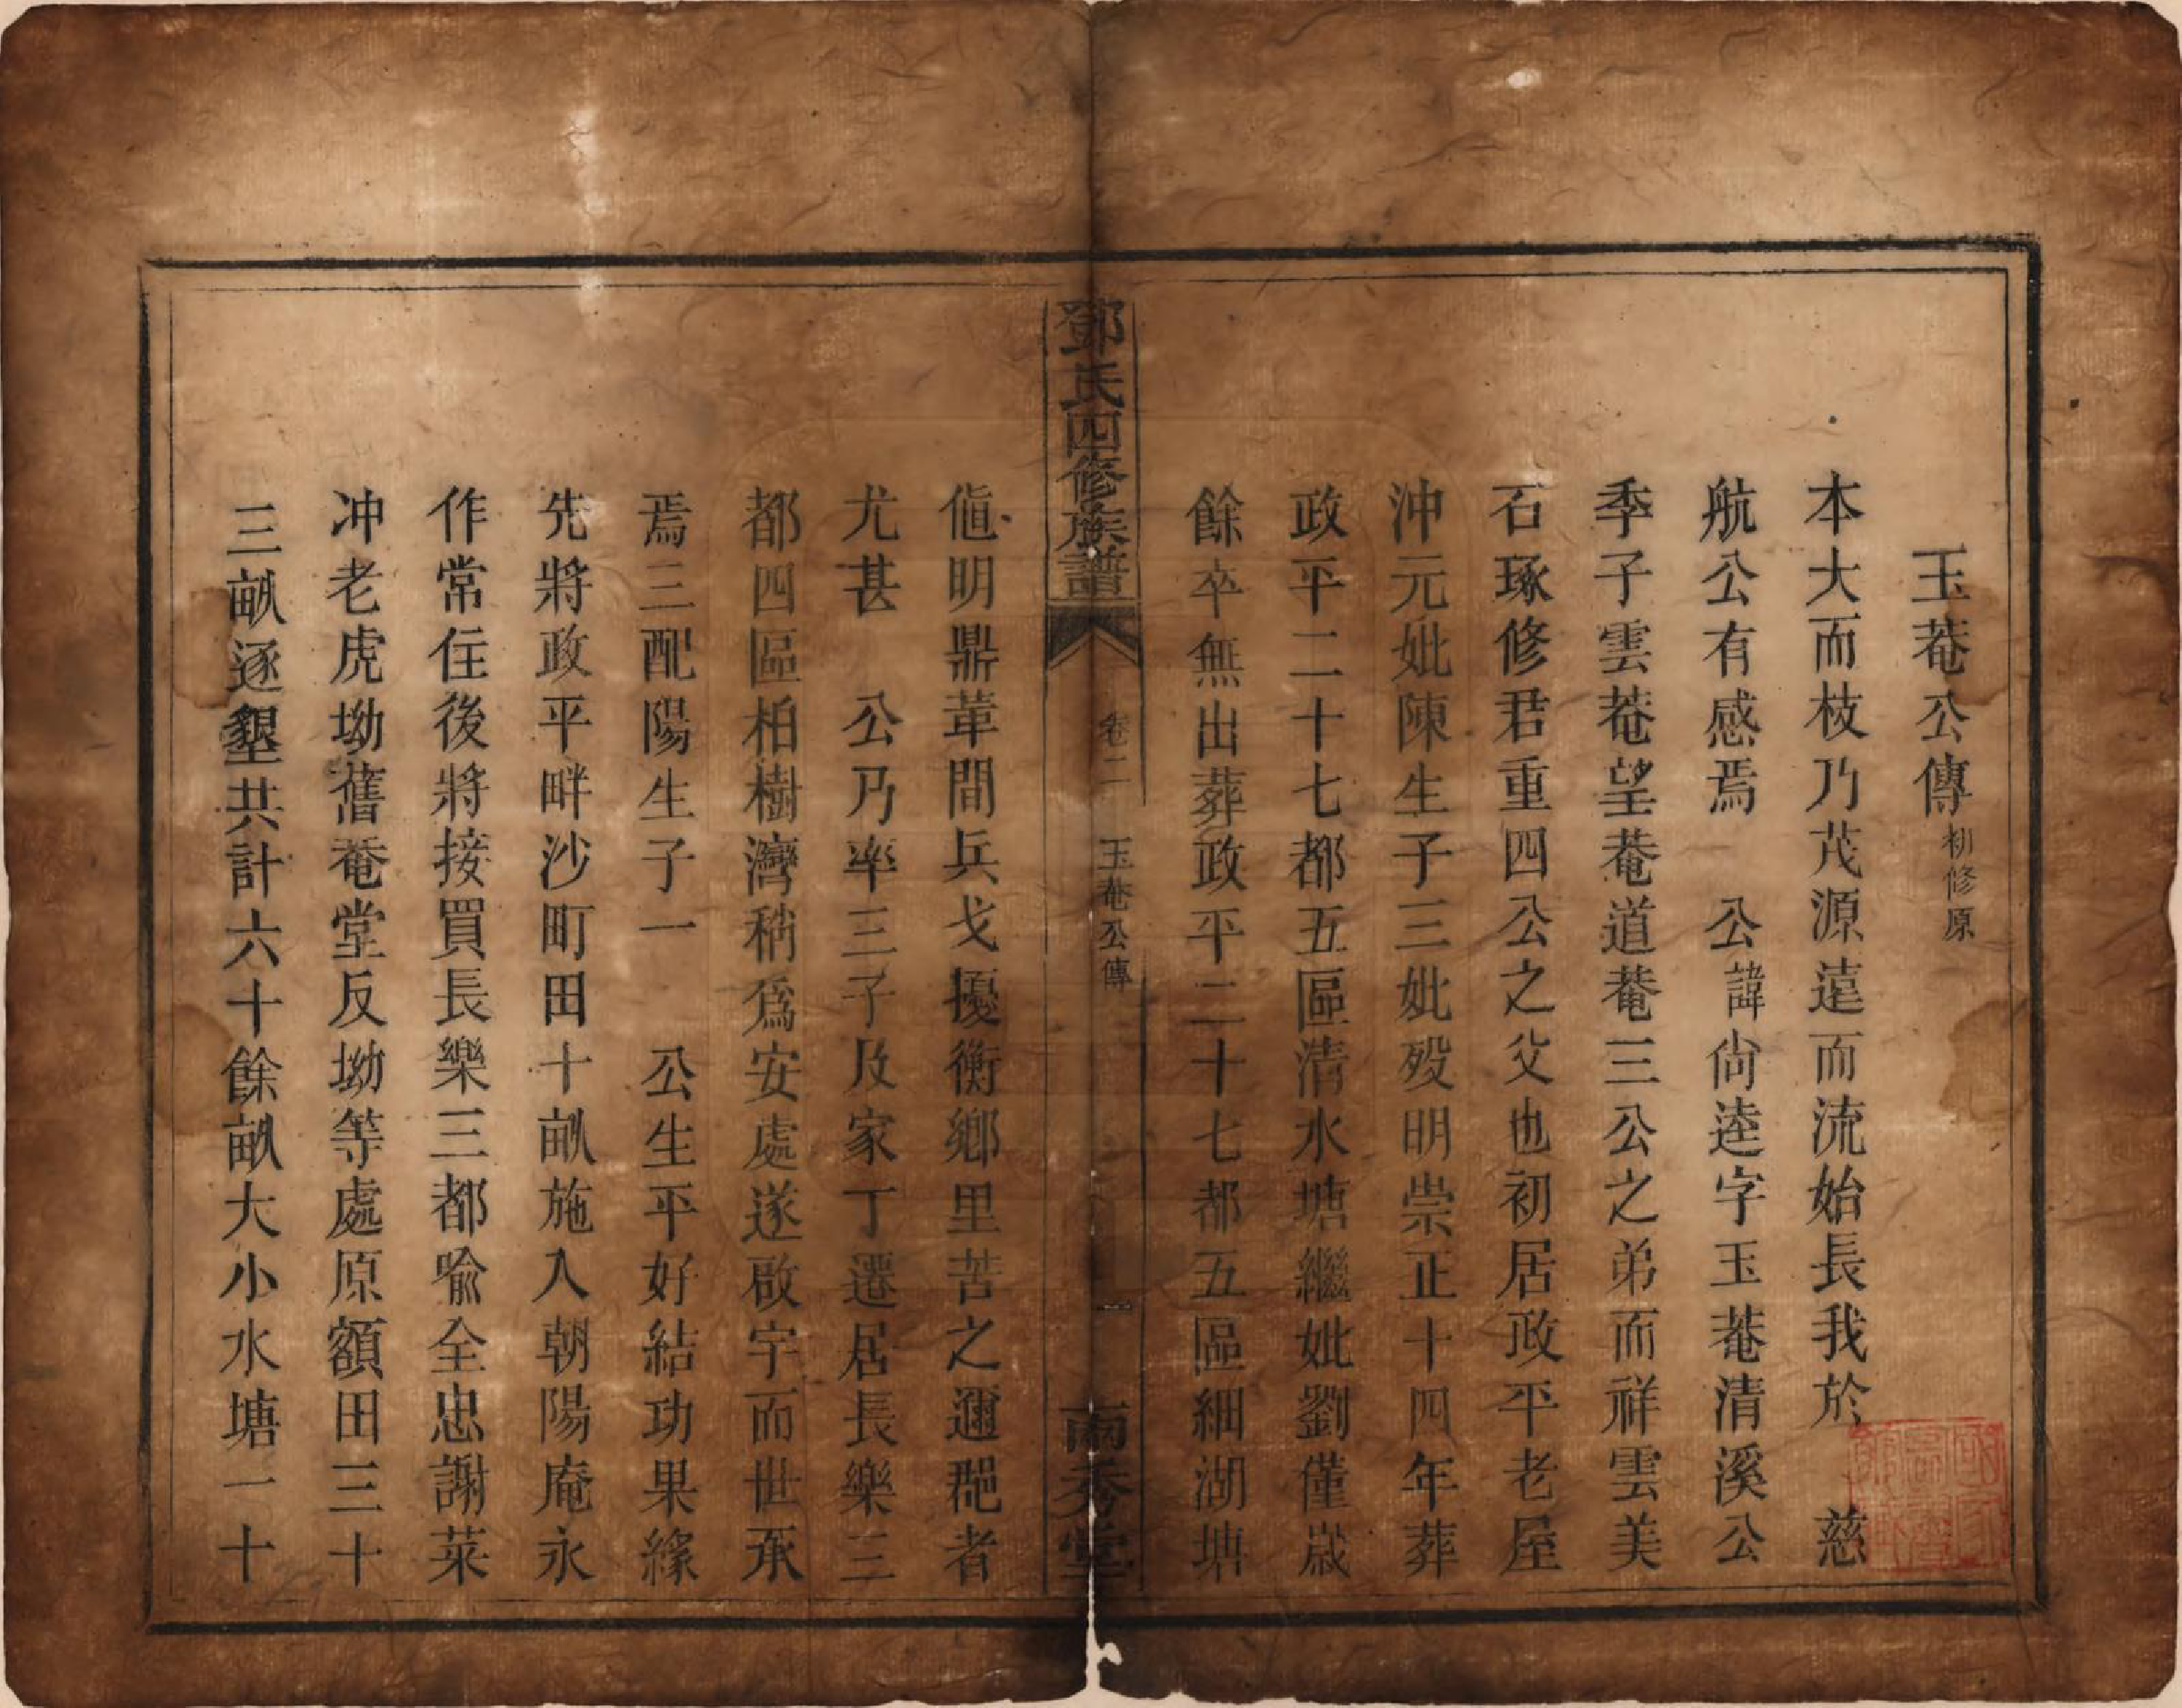 玉菴公傳 初修原
本大而枝乃茂源遠而流始長我於 慈
航公有感焉 公諱尙逵字玉菴清溪公
季子雲菴望菴道菴三公之弟而祥雲美
石琢修君重四公之父也初居政平老屋
沖元妣陳生子三妣歿明崇正十四年葬
政平二十七都五區清水塘繼妣劉僅歲
餘卒無出葬政平二十七都五區細湖塘
鄧氏四修族譜
卷二
玉菴公傳
一
南秀堂
値明鼎革間兵戈擾衡鄉里苦之邇郶者
尤甚 公乃率三子及家丁遷居長樂三
都四區柏樹灣稍爲安處遂啟宇而世承
焉三配陽生子一 公生平好結功果緣
先將政平畔沙町田十畝施入朝陽庵永
作常住後將接買長樂三都喩全忠謝萊
冲老虎坳舊菴堂反坳等處原額田三十
三畝逐墾共計六十餘畝大小水塘一十